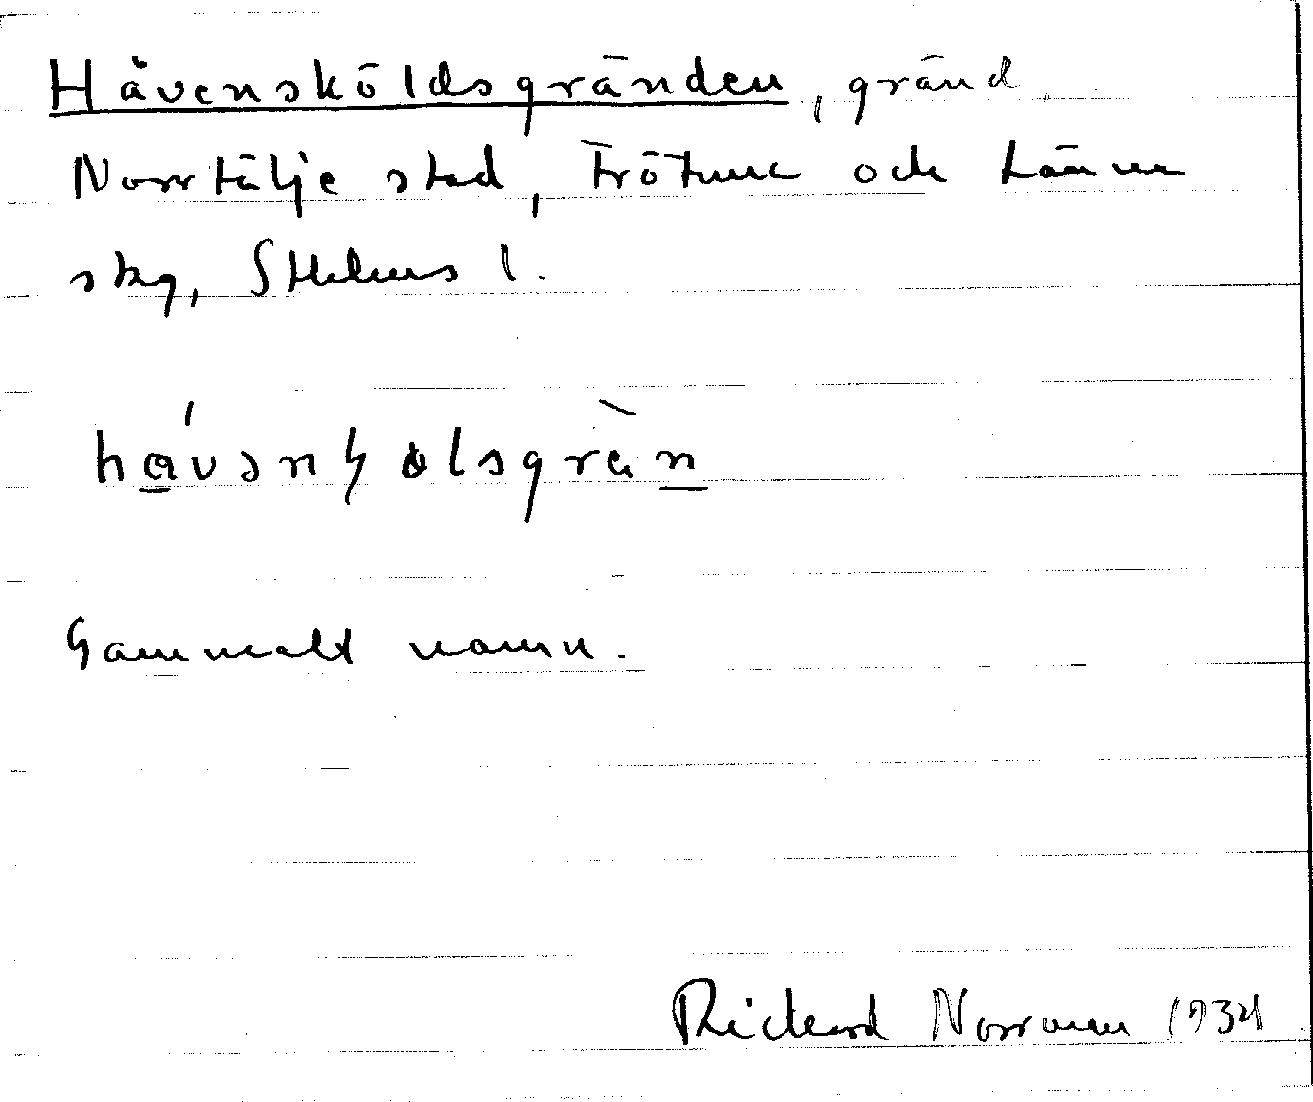 Håvensköldsgränden, gränd,
Norrtälje stad, Frötuna och Länna
skg, Sthlms l.
Gammalt namn.
Rickard Norrman 1934